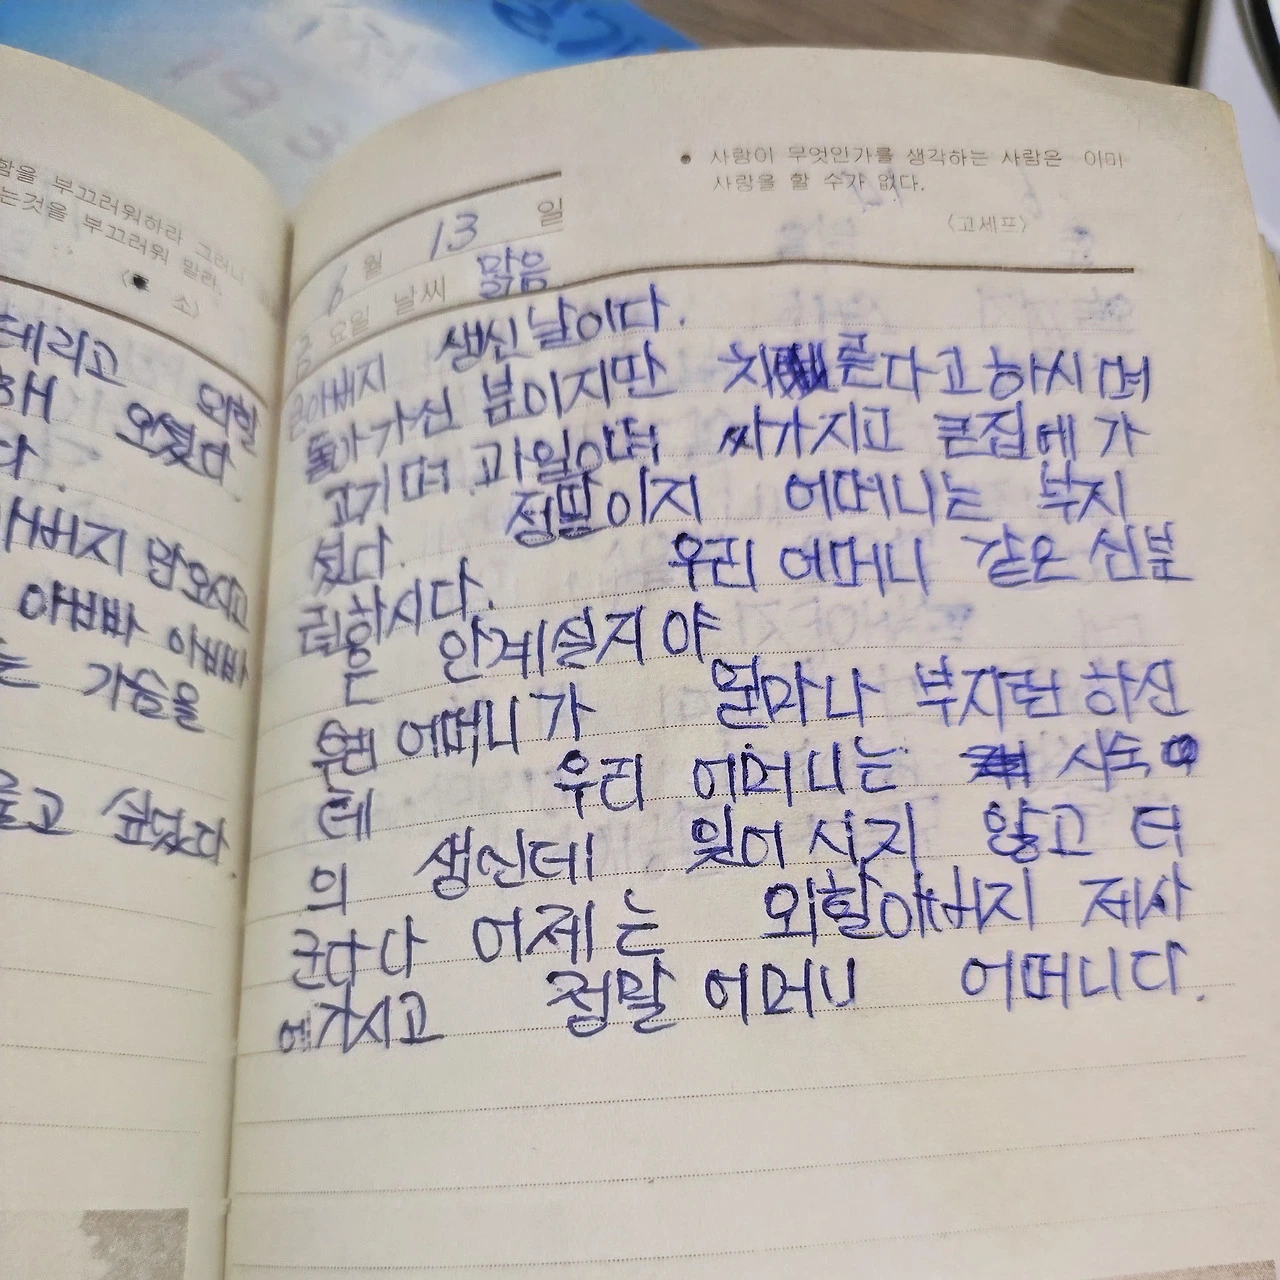 함을 부끄러워하라 그러나
는것을 부끄러워 말라.
소〉
데리고 외할
해 오셨다.
다.
아버지 맘오시고
아빠빠 아빠빠
는 가슴을
싶었다
• 사랑이 무엇인가를 생각하는 사람은 이미
사랑을 할 수가 없다.
〈고세프〉
6 월 13 일
금 요일 날씨 맑음
큰아버지 생신날이다.
돌아가신 분이지만 치룬다고하시며
고기며 과일이며 싸가지고 큰집에 가
셨다. 정말이지 어머니는 부지
런하시다. 우리 어머니 같은 신분
은 안계실지야
우리 어머니가 얼마나 부지런 하신
데 우리 어머니는 시숙
의 생신데 잊어시지 않고 더
군다나 어제는 외할아버지 제사
에가시고 정말 어머니 어머니다.